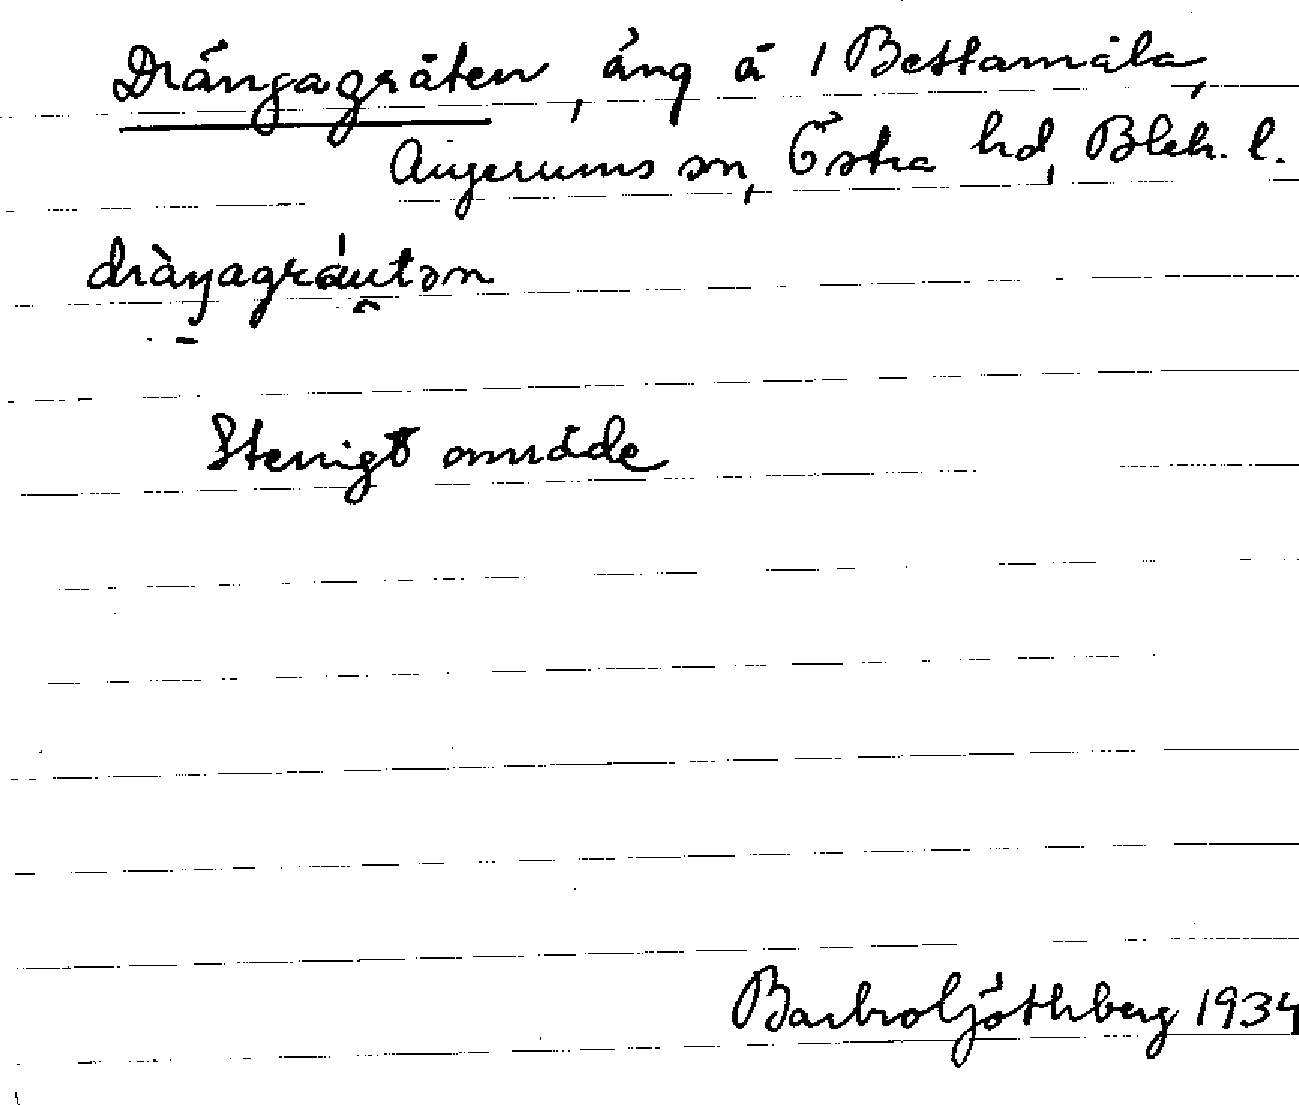 Drängagräten, äng å 1 Bettamåla,
Augerums sn, Östra hd, Blek. l.
dràŋagráutən
Stenigt område
Barbro Göthberg 1934